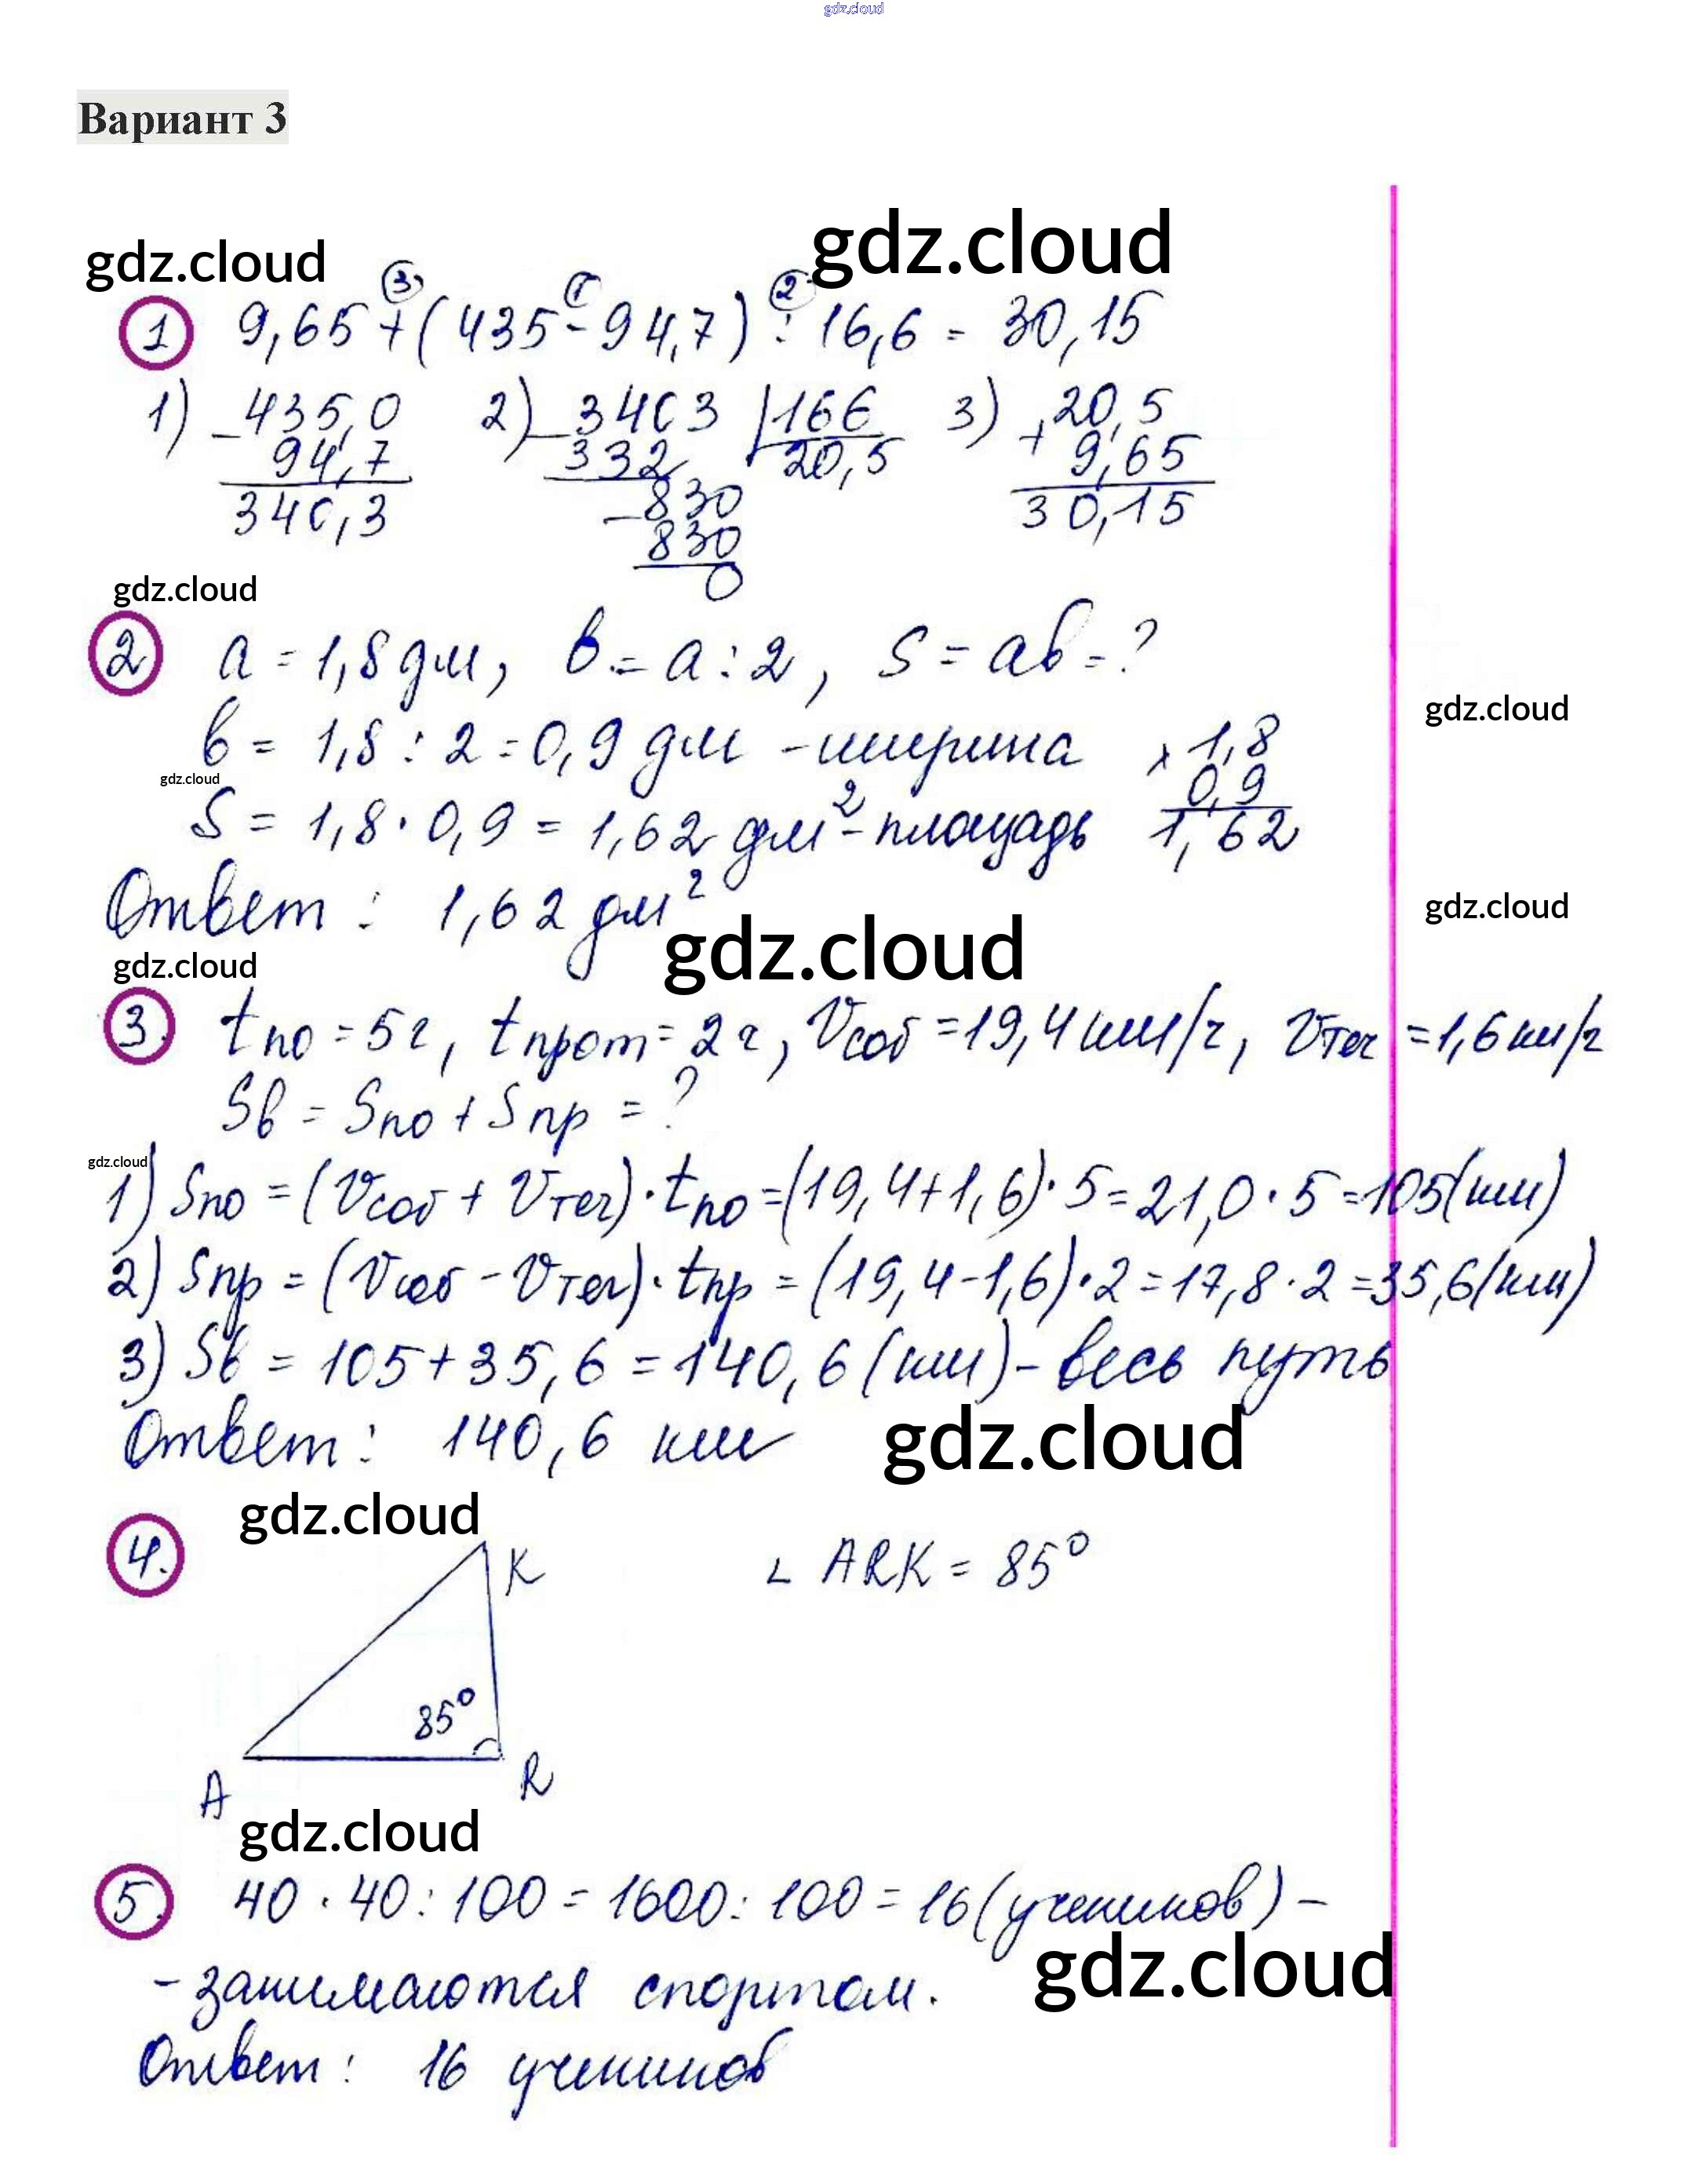 gdz.cloud
Вариант 3
gdz.cloud
gdz.cloud
③ ① ②
1 9,65 + (435 - 94,7) : 16,6 = 30,15
1) 435,0 2) 3403 | 166 3) 20,5
- 94,7 - 332 20,5 + 9,65
340,3 - 830 30,15
830
0
gdz.cloud
2 a = 1,8 дм, b = a : 2, S = ab = ?
gdz.cloud
b = 1,8 : 2 = 0,9 дм - ширина × 1,8
gdz.cloud
0,9
S = 1,8 · 0,9 = 1,62 дм² - площадь 1,62
Ответ : 1,62 дм²
gdz.cloud
gdz.cloud
gdz.cloud
3. tпо = 5 ч, tпрот = 2 ч, Vсоб = 19,4 км/ч, Vтеч = 1,6 км/ч
Sв = Sпо + Sпр = ?
gdz.cloud
1) Sпо = (Vсоб + Vтеч) · tпо = (19,4 + 1,6) · 5 = 21,0 · 5 = 105 (км)
2) Sпр = (Vсоб - Vтеч) · tпр = (19,4 - 1,6) · 2 = 17,8 · 2 = 35,6 (км)
3) Sв = 105 + 35,6 = 140,6 (км) - весь путь
Ответ : 140,6 км
gdz.cloud
gdz.cloud
4. K ∠ ARK = 85°
85°
A R
gdz.cloud
5. 40 · 40 : 100 = 1600 : 100 = 16 (учеников) -
gdz.cloud
- занимаются спортом.
Ответ : 16 учеников